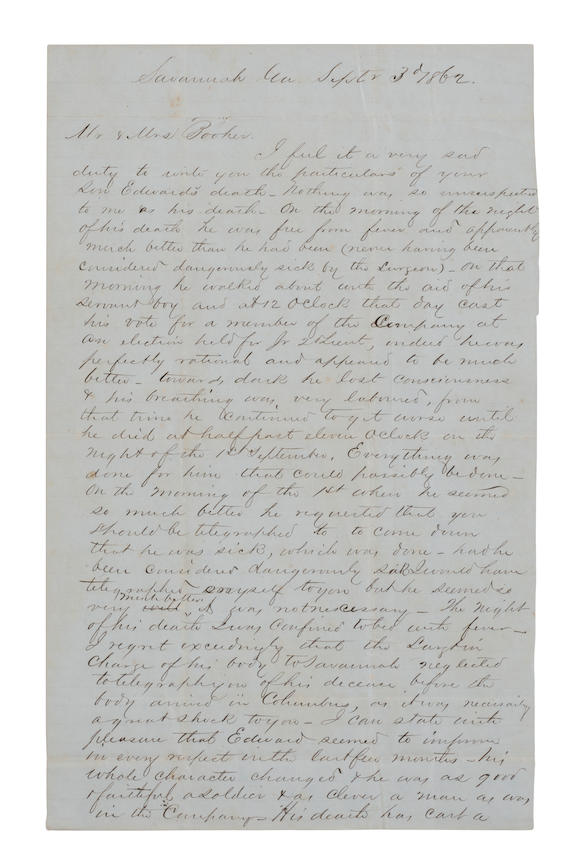 Savannah Ga. Septr 3d 1862.
Mr & Mrs Booher.
I feel it a very sad
duty to write you the particulars of your
Son Edwards death - Nothing was so unexspected
to me as his death - On the morning of the night
of his death he was free from fever and apparently
much better than he had been (never having been
considered dangerously sick by the Surgeon) - On that
morning he walked about with the aid of his
servant boy and at 12 O'Clock that day cast
his vote for a member of the Company at
an election held for Jr 2 Lieut, indeed he was
perfectly rational and appeared to be much
better - towards dark he lost consciousness
& his breathing was very laboured, from
that time he continued to get worse until
he died at half past eleven O'clock on the
night of the 1st September. Everything was
done for him that could possibly be done -
On the morning of the 1st when he seemed
so much better he requested that you
should be telegraphed to to come down
that he was sick, which was done - had he
been considered dangerously sick I would have
telegraphed myself to you but he seemed so
very much better, it was not nescessary - The night
of his death I was confined to bed with fever -
I regret exceedingly that the Surg in
Charge of his body to Savannah neglected
to telegraph you of his decease before the
body arrived in Columbus, as it was necessarily
a great shock to you - I can state with
pleasure that Edward seemed to improve
in every respect in the last few months - his
whole character changed & he was as good
& faithful a soldier & as clever a man as was
in the Company - His death has cast a